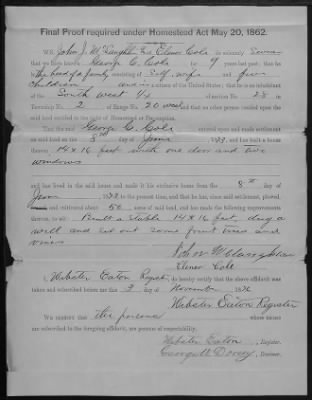 Final Proof required under Homestead Act May 20, 1862.
WE, John J. McLaughlin & Elmer Cole do solemnly Swear
that we have known George C. Cole for 9 years last past; that he
is the head of a family consisting of Self, wife and five
Children and is a citizen of the United States; that he is an inhabitant
of the South West 1/4 of section No. 28 in
Township No. 2 of Range No. 20 West and that no other person resided upon the said
land entitled to the right of Homestead or Pre-emption.
That the said George C. Cole entered upon and made settlement
on said land on the day of June, and has built a house
thereon 14 x 16 feet with one door and two
windows
and has lived in the said house and made it his exclusive home from the 8th day of
June to the present time, and that he has, since said settlement, plowed,
and cultivated about 50 acres of said land, and has made the following improvements
thereon, to wit: Built a stable 14 x 16 feet, dug a
well and set out some fruit trees and
vines
Elmer Cole
I, Webster Eaton Register do hereby certify that the above affidavit was
taken and subscribed before me this 3 day of November
Webster Eaton Register
WE CERTIFY that the persons whose names
are subscribed to the foregoing affidavit, are persons of respectability.
Webster Eaton, Register.
George W Dorsey, Receiver.